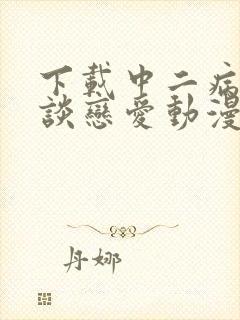 下載中二病
談戀愛動漫
丹娜